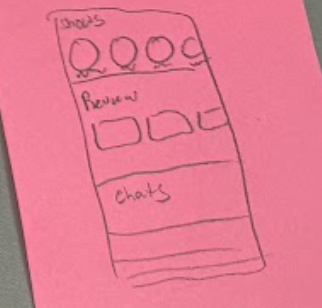 Shouts
Review
Chats